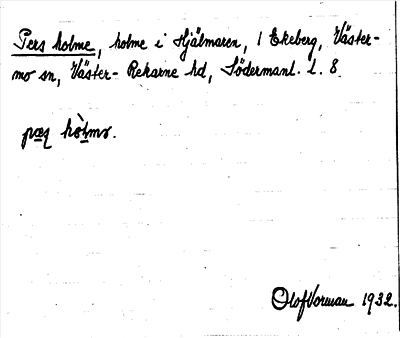 Pers holme, holme i Hjälmaren, 1 Ekeberg, Väster-
mo sn, Väster-Rekarne hd, Södermanl. L. 8.
pæʂ hòlmə.
Olof Vorman 1932.